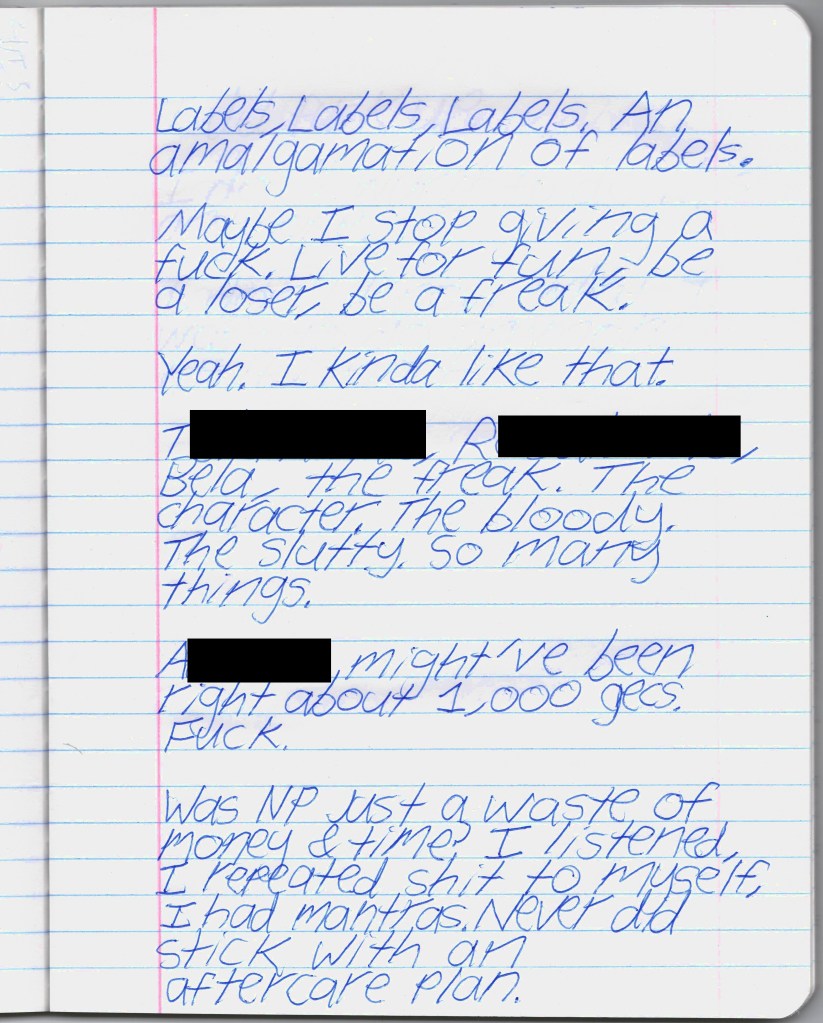 Labels, Labels, Labels. An
amalgamation of labels.
Maybe I stop giving a
fuck. Live for fun, be
a loser, be a freak.
Yeah. I kinda like that.
T , R ,
Bela, the freak. The
character. The bloody.
The slutty. So many
things.
A , might've been
right about 1,000 gecs.
Fuck.
Was NP just a waste of
money & time? I listened,
I repeated shit to myself,
I had mantras. Never did
stick with an
aftercare plan.